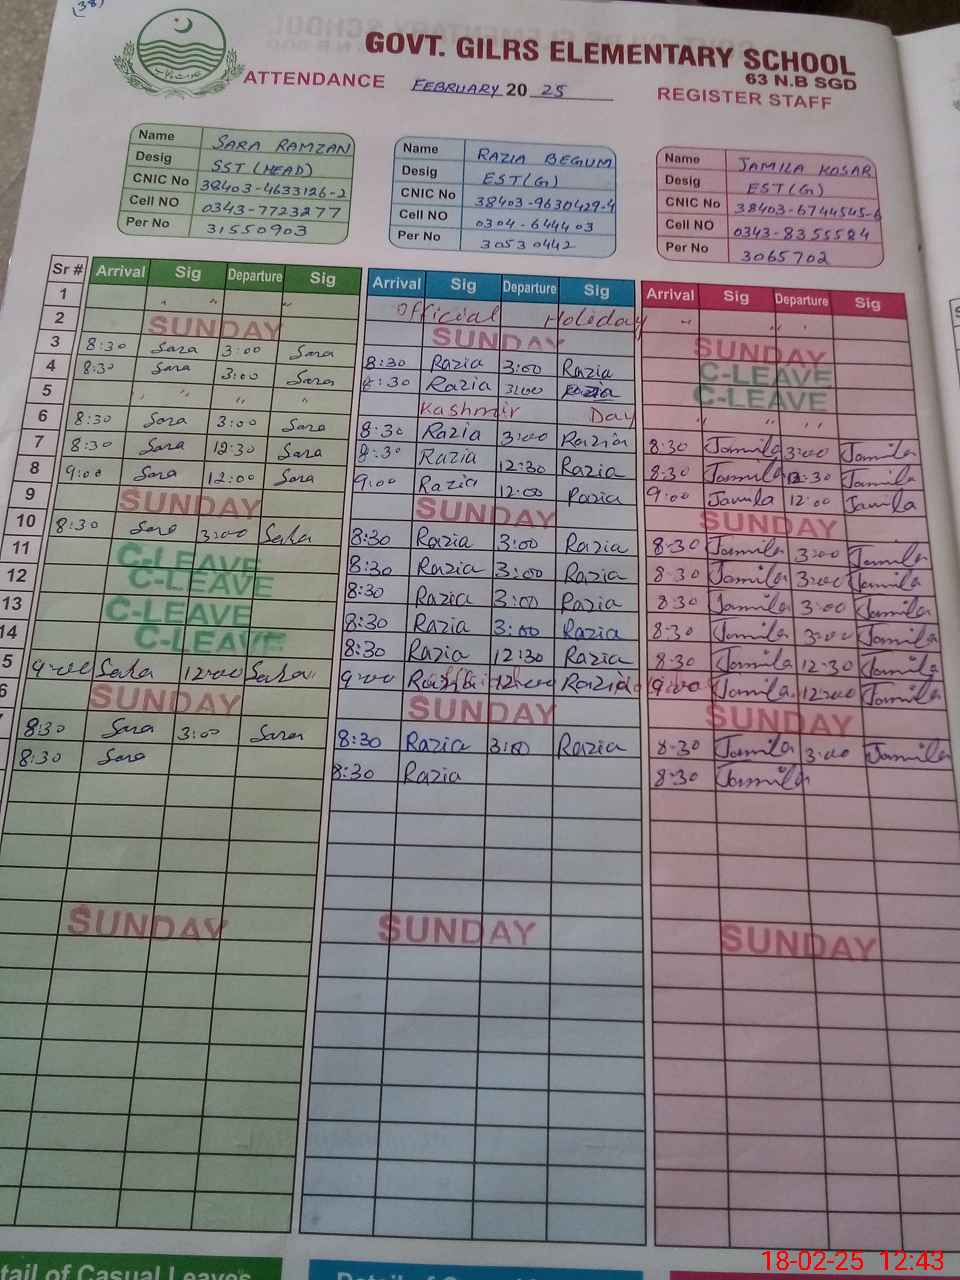 (38)
GOVT. GILRS ELEMENTARY SCHOOL
63 N.B SGD
ATTENDANCE FEBRUARY 20 25 REGISTER STAFF
Name SARA RAMZAN
Desig SST (HEAD)
CNIC No 38403-4633126-2
Cell NO 0343-7723277
Per No 31550903
Name RAZIA BEGUM
Desig EST(G)
CNIC No 38403-9630429-4
Cell NO 0304-644403
Per No 30530442
Name JAMILA KOSAR
Desig EST(G)
CNIC No 38403-6744545-6
Cell NO 0343-8355584
Per No 3065702
Sr # Arrival Sig Departure Sig Arrival Sig Departure Sig Arrival Sig Departure Sig
1 " " " Official Holiday " " "
2 SUNDAY SUNDAY SUNDAY
3 8:30 Sara 3:00 Sara 8:30 Razia 3:00 Razia C-LEAVE
4 8:30 Sara 3:00 Sara 8:30 Razia 3:00 Razia C-LEAVE
5 " " " " Kashmir Day " " "
6 8:30 Sara 3:00 Sara 8:30 Razia 3:00 Razia 8:30 Jamila 3:00 Jamila
7 8:30 Sara 12:30 Sara 8:30 Razia 12:30 Razia 8:30 Jamila 12:30 Jamila
8 9:00 Sara 12:00 Sara 9:00 Razia 12:00 Razia 9:00 Jamila 12:00 Jamila
9 SUNDAY SUNDAY SUNDAY
10 8:30 Sara 3:00 Sara 8:30 Razia 3:00 Razia 8:30 Jamila 3:00 Jamila
11 C-LEAVE 8:30 Razia 3:00 Razia 8:30 Jamila 3:00 Jamila
12 C-LEAVE 8:30 Razia 3:00 Razia 8:30 Jamila 3:00 Jamila
13 C-LEAVE 8:30 Razia 3:00 Razia 8:30 Jamila 3:00 Jamila
14 C-LEAVE 8:30 Razia 12:30 Razia 8:30 Jamila 12:30 Jamila
5 9:00 Sara 12:00 Sara 9:00 Razia 12:00 Razia 9:00 Jamila 12:00 Jamila
6 SUNDAY SUNDAY SUNDAY
8:30 Sara 3:00 Sara 8:30 Razia 3:00 Razia 8:30 Jamila 3:00 Jamila
8:30 Sara 8:30 Razia 8:30 Jamila
SUNDAY SUNDAY SUNDAY
tail of Casual Leaves
18-02-25 12:43